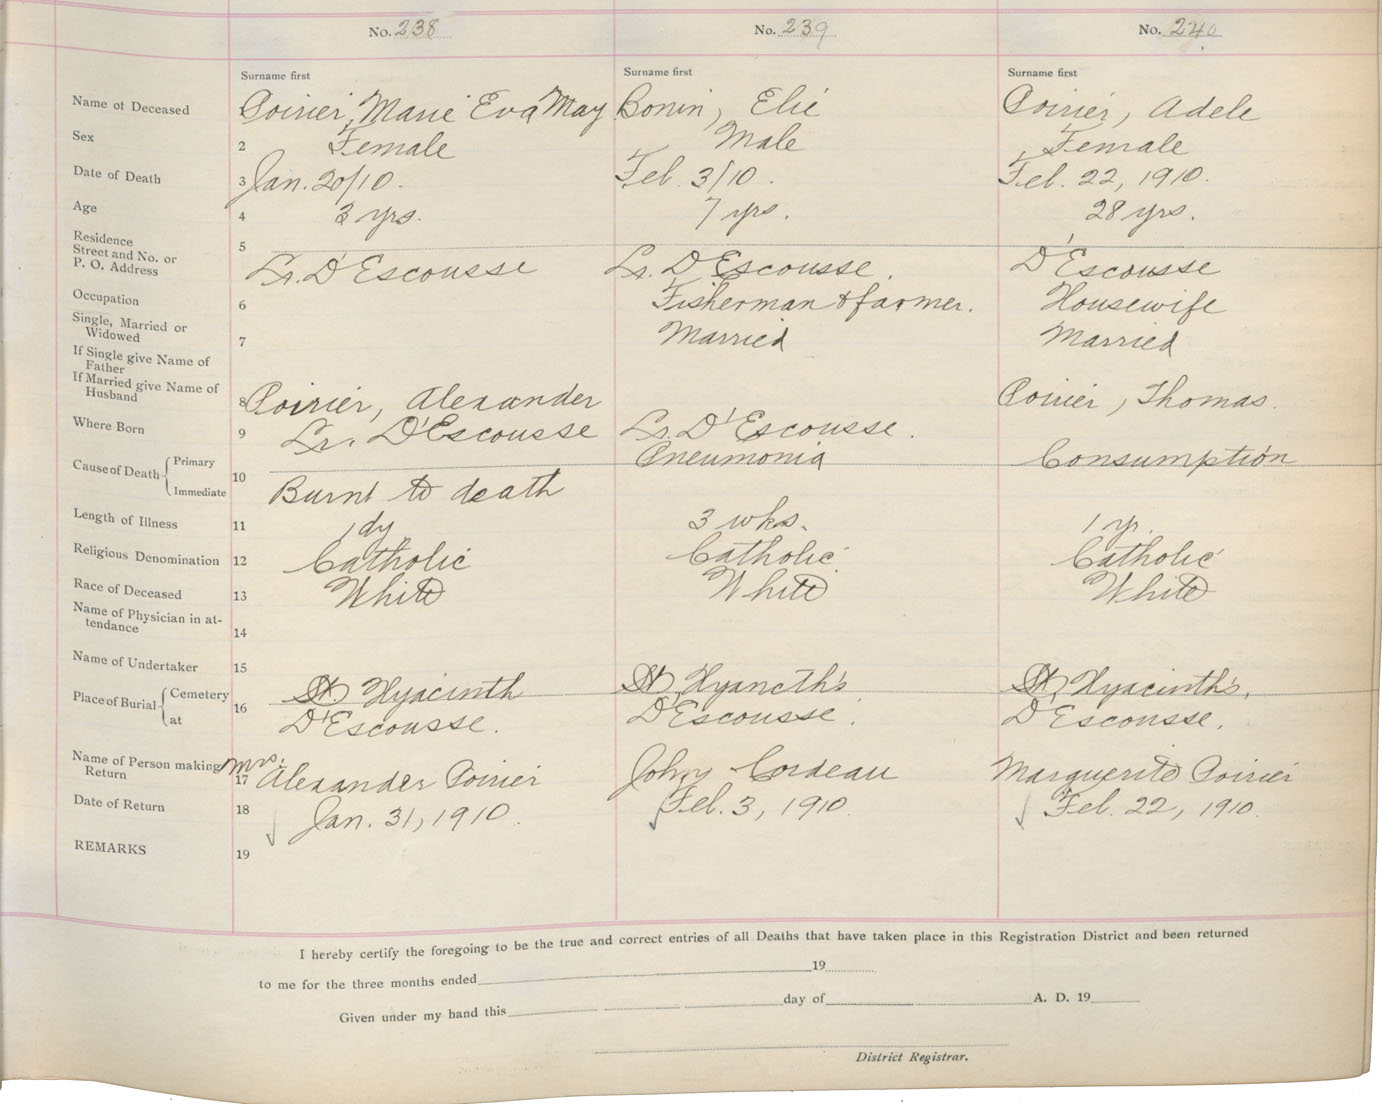 No. 238
No. 239
No. 240
Surname first
Surname first
Surname first
Name of Deceased Poirier, Marie Eva May Bonin, Elie Poirier, Adele
Sex 2 Female Male Female
Date of Death 3 Jan. 20/10. Feb. 3/10. Feb. 22, 1910.
Age 4 3 yrs. 7 yrs. 28 yrs.
Residence
Street and No. or 5
P. O. Address Lr. D'Escousse Lr. D'Escousse. D'Escousse
Occupation 6 Fisherman & farmer. Housewife
Single, Married or
Widowed 7 Married Married
If Single give Name of
Father
If Married give Name of
Husband 8 Poirier, Alexander Poirier, Thomas.
Where Born 9 Lr. D'Escousse Lr. D'Escousse.
Cause of Death { Primary Pneumonia Consumption
10
Immediate Burnt to death
Length of Illness 11 1 dy 3 wks. 1 yr.
Religious Denomination 12 Catholic Catholic. Catholic
Race of Deceased 13 White White White
Name of Physician in at-
tendance 14
Name of Undertaker 15
Place of Burial { Cemetery St Hyacinth St. Hyancth's St. Hyacinth's.
at 16 D'Escousse. D'Escousse. D'Escousse.
Name of Person making Mrs.
Return 17 Alexander Poirier Johny Cordeau Marguerite Poirier
Date of Return 18 Jan. 31, 1910. Feb. 3, 1910. Feb. 22, 1910.
REMARKS 19
I hereby certify the foregoing to be the true and correct entries of all Deaths that have taken place in this Registration District and been returned
to me for the three months ended 19
Given under my hand this day of A. D. 19
District Registrar.